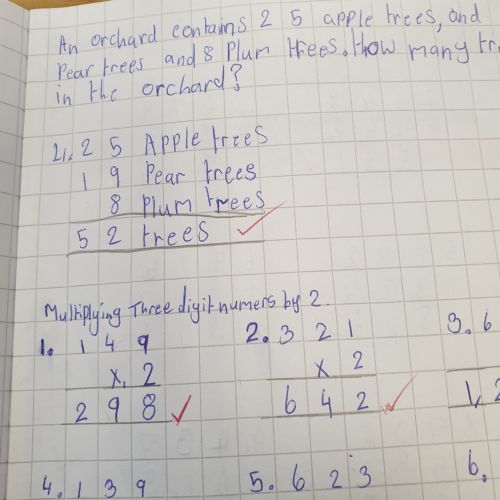 An orchard contains 2 5 apple trees, and
Pear trees and 8 Plum trees. How many
in the orchard?
4. 2 5 Apple trees
1 9 Pear trees
8 Plum trees
5 2 trees
Multiplying Three digit numers by 2.
1. 1 4 9 2. 3 2 1 3. 6
x 2 x 2
2 9 8 6 4 2 1, 2
4. 1 3 9 5. 6 2 3 6.